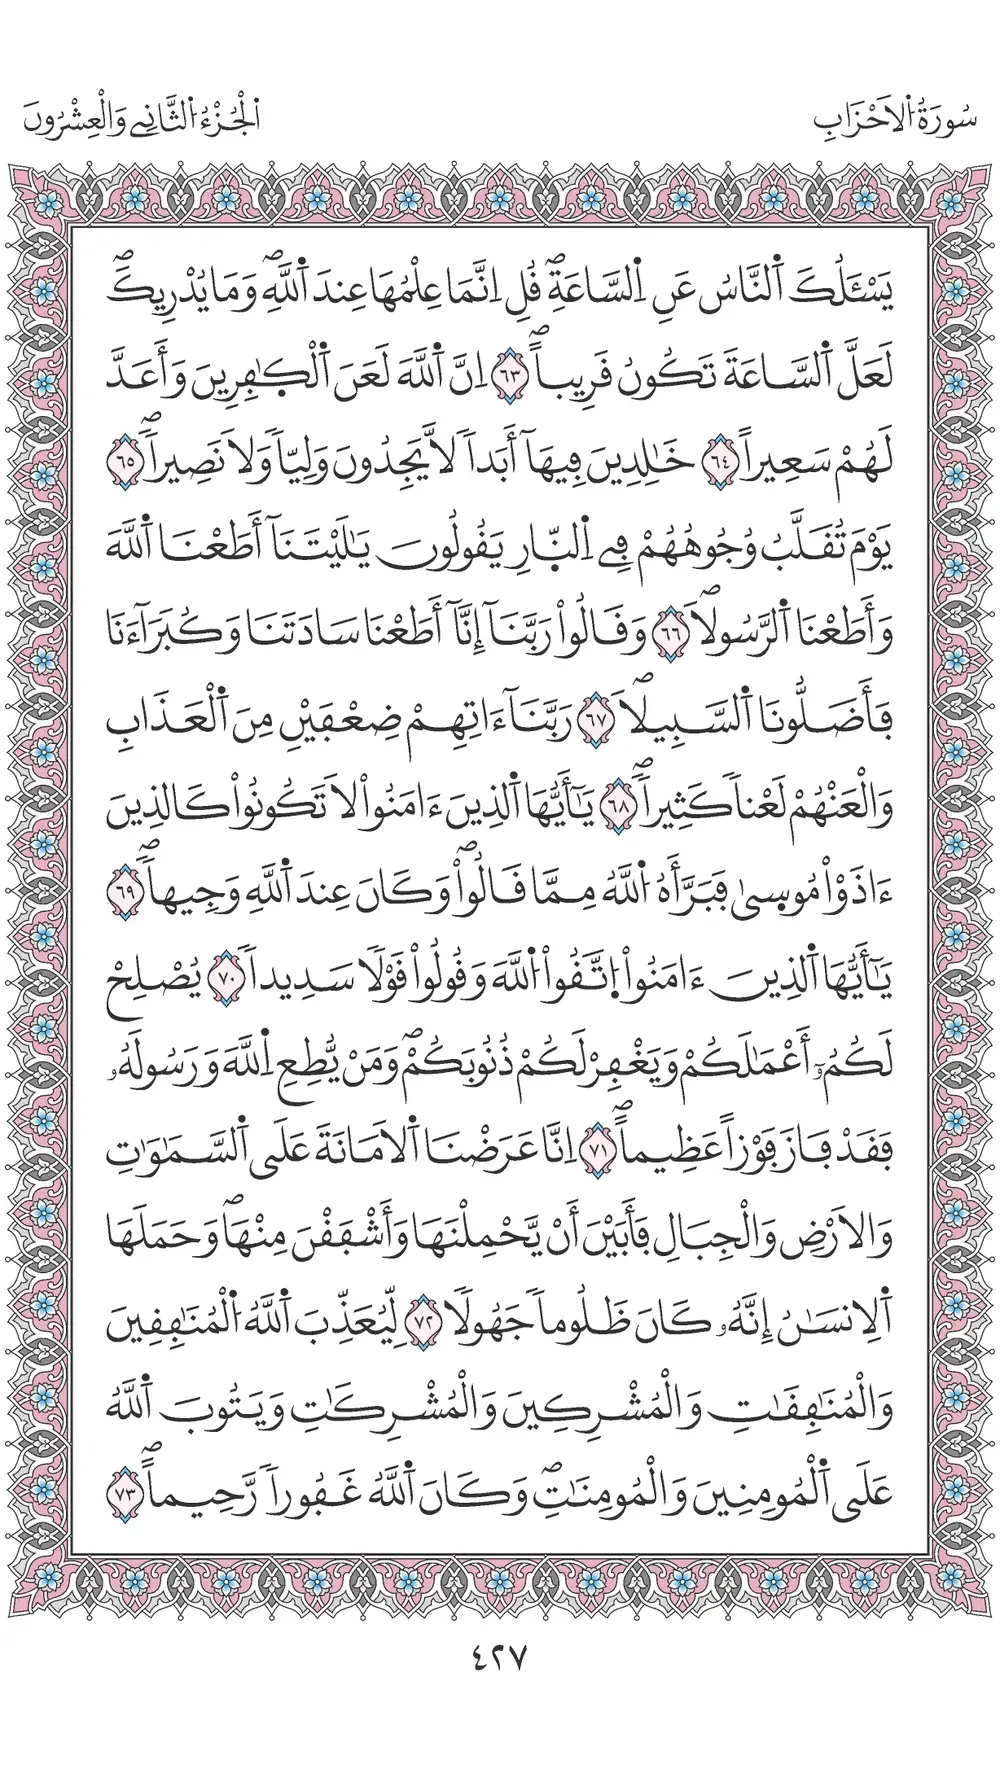 سُورَةُ الَاحْزَابِ
الْجُزْءُ الثَّانِے وَالْعِشْرُونَ
يَسْـَٔلُكَ اَ۬لنَّاسُ عَنِ اِ۬لسَّاعَةِۖ قُلِ اِنَّمَا عِلْمُهَا عِندَ اَ۬للَّهِۖ وَمَا يُدْرِيكَۖ
لَعَلَّ اَ۬لسَّاعَةَ تَكُونُ قَرِيباًۖ ٦٣ اِنَّ اَ۬للَّهَ لَعَنَ اَ۬لْكٰ۪فِرِينَ وَأَعَدَّ
لَهُمْ سَعِيراً ٦٤ خَٰلِدِينَ فِيهَآ أَبَداٗ لَّا يَجِدُونَ وَلِيّاٗ وَلَا نَصِيراٗۖ ٦٥
يَوْمَ تُقَلَّبُ وُجُوهُهُمْ فِے اِ۬لنّ۪ارِ يَقُولُونَ يَٰلَيْتَنَآ أَطَعْنَا اَ۬للَّهَ
وَأَطَعْنَا اَ۬لرَّسُولَاۖ ٦٦ وَقَالُواْ رَبَّنَآ إِنَّآ أَطَعْنَا سَادَتَنَا وَكُبَرَآءَنَا
فَأَضَلُّونَا اَ۬لسَّبِيلَاۖ ٦٧ رَبَّنَآ ءَاتِهِمْ ضِعْفَيْنِ مِنَ اَ۬لْعَذَابِ
وَالْعَنْهُمْ لَعْناٗ كَثِيراٗۖ ٦٨ يَٰٓأَيُّهَا اَ۬لذِينَ ءَامَنُواْ لَا تَكُونُواْ كَالذِينَ
ءَاذَوْاْ مُوس۪يٰ فَبَرَّأَهُ اُ۬للَّهُ مِمَّا قَالُواْۖ وَكَانَ عِندَ اَ۬للَّهِ وَجِيهاٗۖ ٦٩
يَٰٓأَيُّهَا اَ۬لذِينَ ءَامَنُواْ اُ۪تَّقُواْ اُ۬للَّهَ وَقُولُواْ قَوْلاٗ سَدِيداٗ ٧٠ يُصْلِحْ
لَكُمُۥٓ أَعْمَٰلَكُمْ وَيَغْفِرْ لَكُمْ ذُنُوبَكُمْۖ وَمَنْ يُّطِعِ اِ۬للَّهَ وَرَسُولَهُۥ
فَقَدْ فَازَ فَوْزاً عَظِيماًۖ ٧١ اِنَّا عَرَضْنَا اَ۬لَامَانَةَ عَلَي اَ۬لسَّمَٰوَٰتِ
وَالَارْضِ وَالْجِبَالِ فَأَبَيْنَ أَنْ يَّحْمِلْنَهَا وَأَشْفَقْنَ مِنْهَاۖ وَحَمَلَهَا
اَ۬لِانسَٰنُ إِنَّهُۥ كَانَ ظَلُوماٗ جَهُولاٗ ٧٢ لِّيُعَذِّبَ اَ۬للَّهُ اُ۬لْمُنَٰفِقِينَ
وَالْمُنَٰفِقَٰتِ وَالْمُشْرِكِينَ وَالْمُشْرِكَٰتِ وَيَتُوبَ اَ۬للَّهُ
عَلَي اَ۬لْمُومِنِينَ وَالْمُومِنَٰتِۖ وَكَانَ اَ۬للَّهُ غَفُوراٗ رَّحِيماًۖ ٧٣
٤٢٧